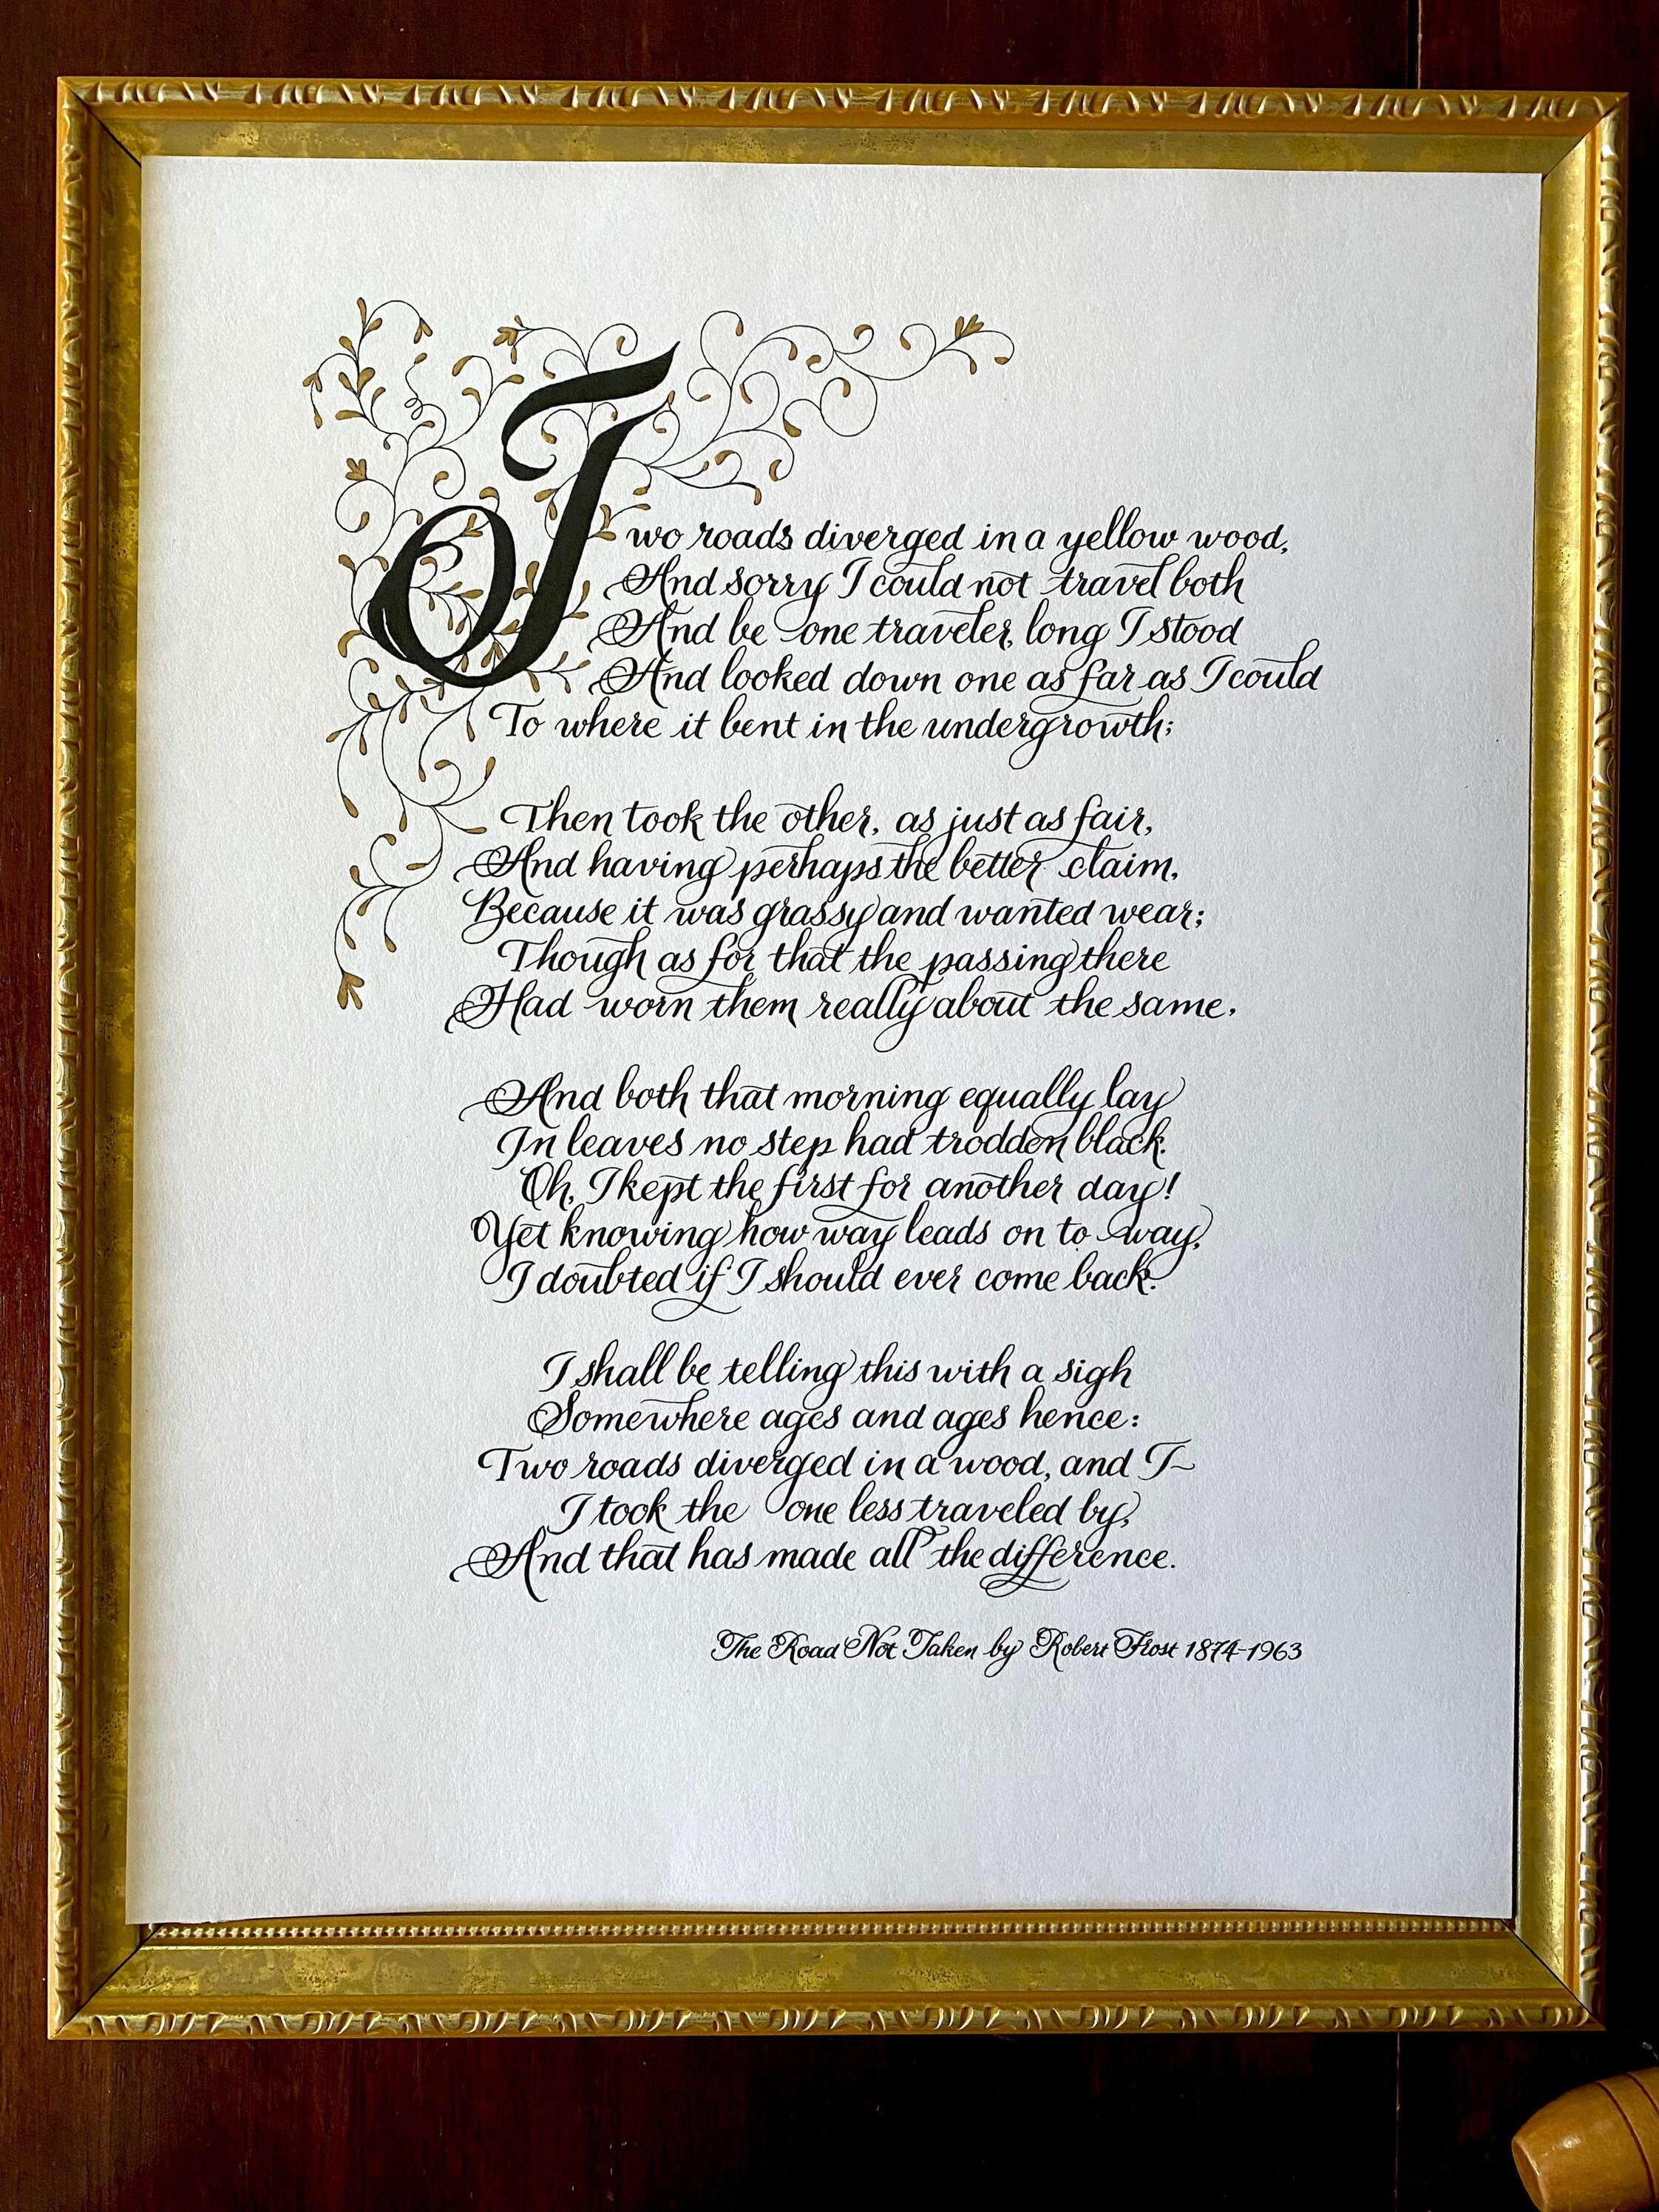 Two roads diverged in a yellow wood,
And sorry I could not travel both
And be one traveler, long I stood
And looked down one as far as I could
To where it bent in the undergrowth;
Then took the other, as just as fair,
And having perhaps the better claim,
Because it was grassy and wanted wear;
Though as for that the passing there
Had worn them really about the same,
And both that morning equally lay
In leaves no step had trodden black.
Oh, I kept the first for another day!
Yet knowing how way leads on to way,
I doubted if I should ever come back.
I shall be telling this with a sigh
Somewhere ages and ages hence:
Two roads diverged in a wood, and I—
I took the one less traveled by,
And that has made all the difference.
The Road Not Taken by Robert Frost 1874-1963